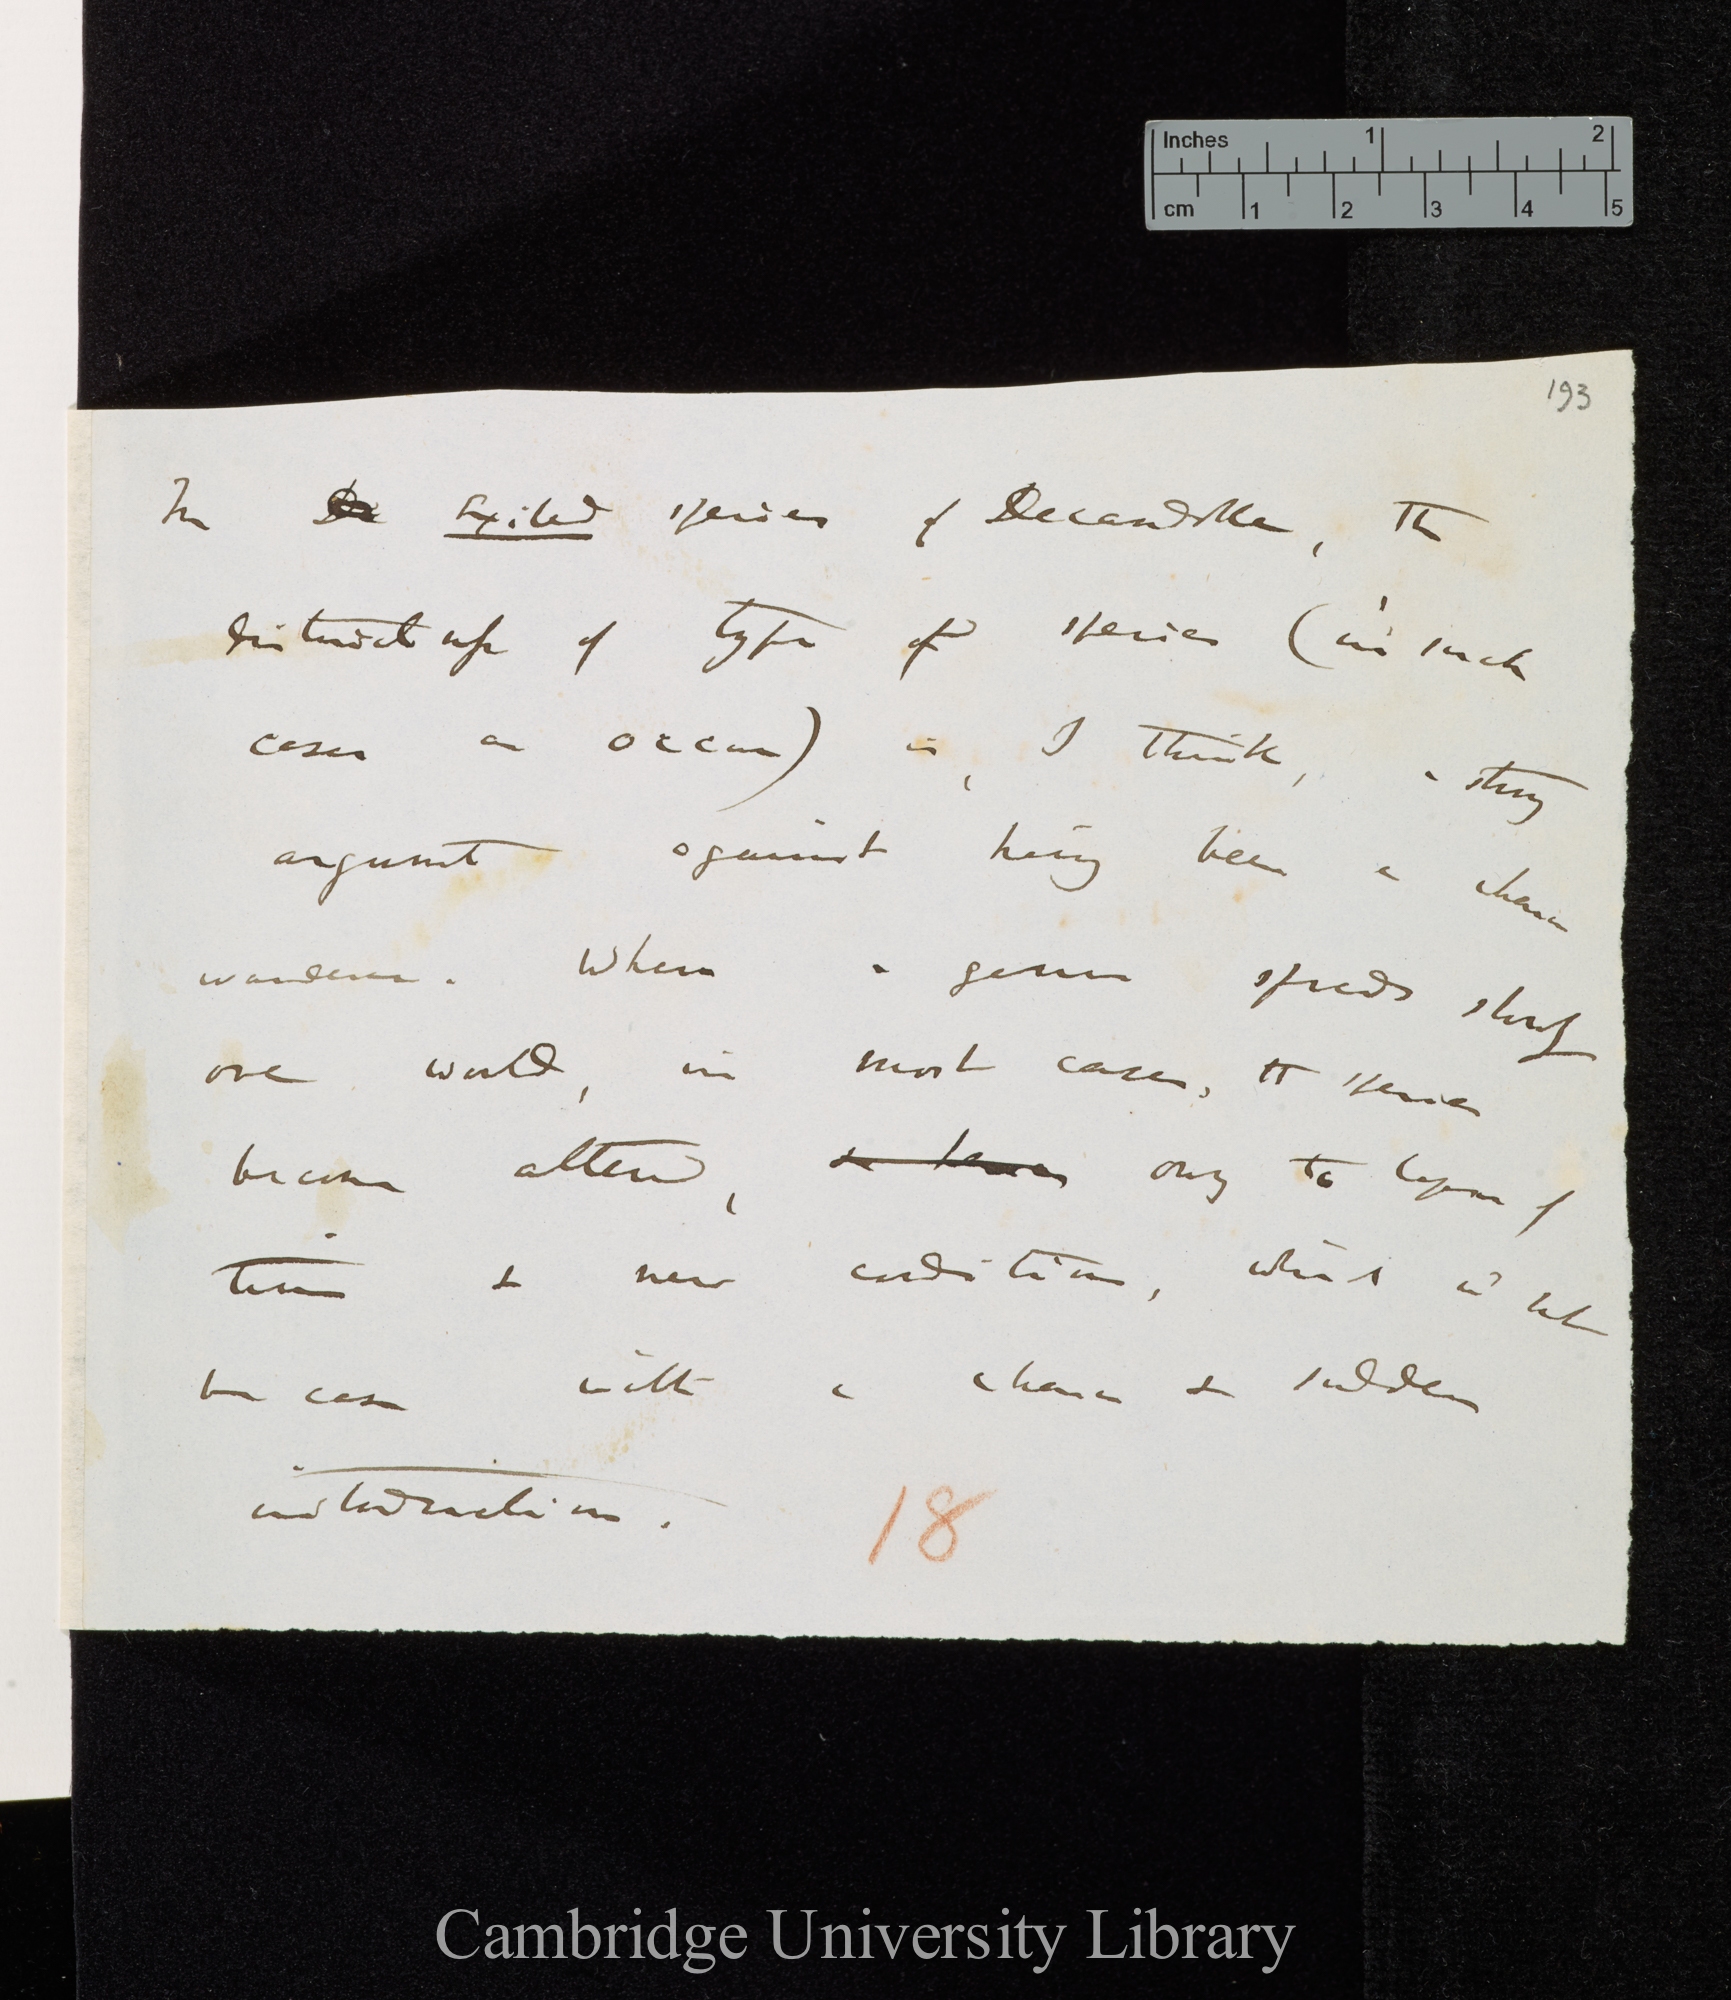 Inches 1 2
cm 1 2 3 4 5
193
In De Exiled species of Decandolle, the
distinctness of type of species (in such
cases as occur) is, I think, a strong
argument against having been a chance
wanderer. When a genus spreads slowly
over world, in most cases, the species
become altered, owing to lapse of
time & new conditions, which wd not
be case with a chance & sudden
introduction.
18
Cambridge University Library